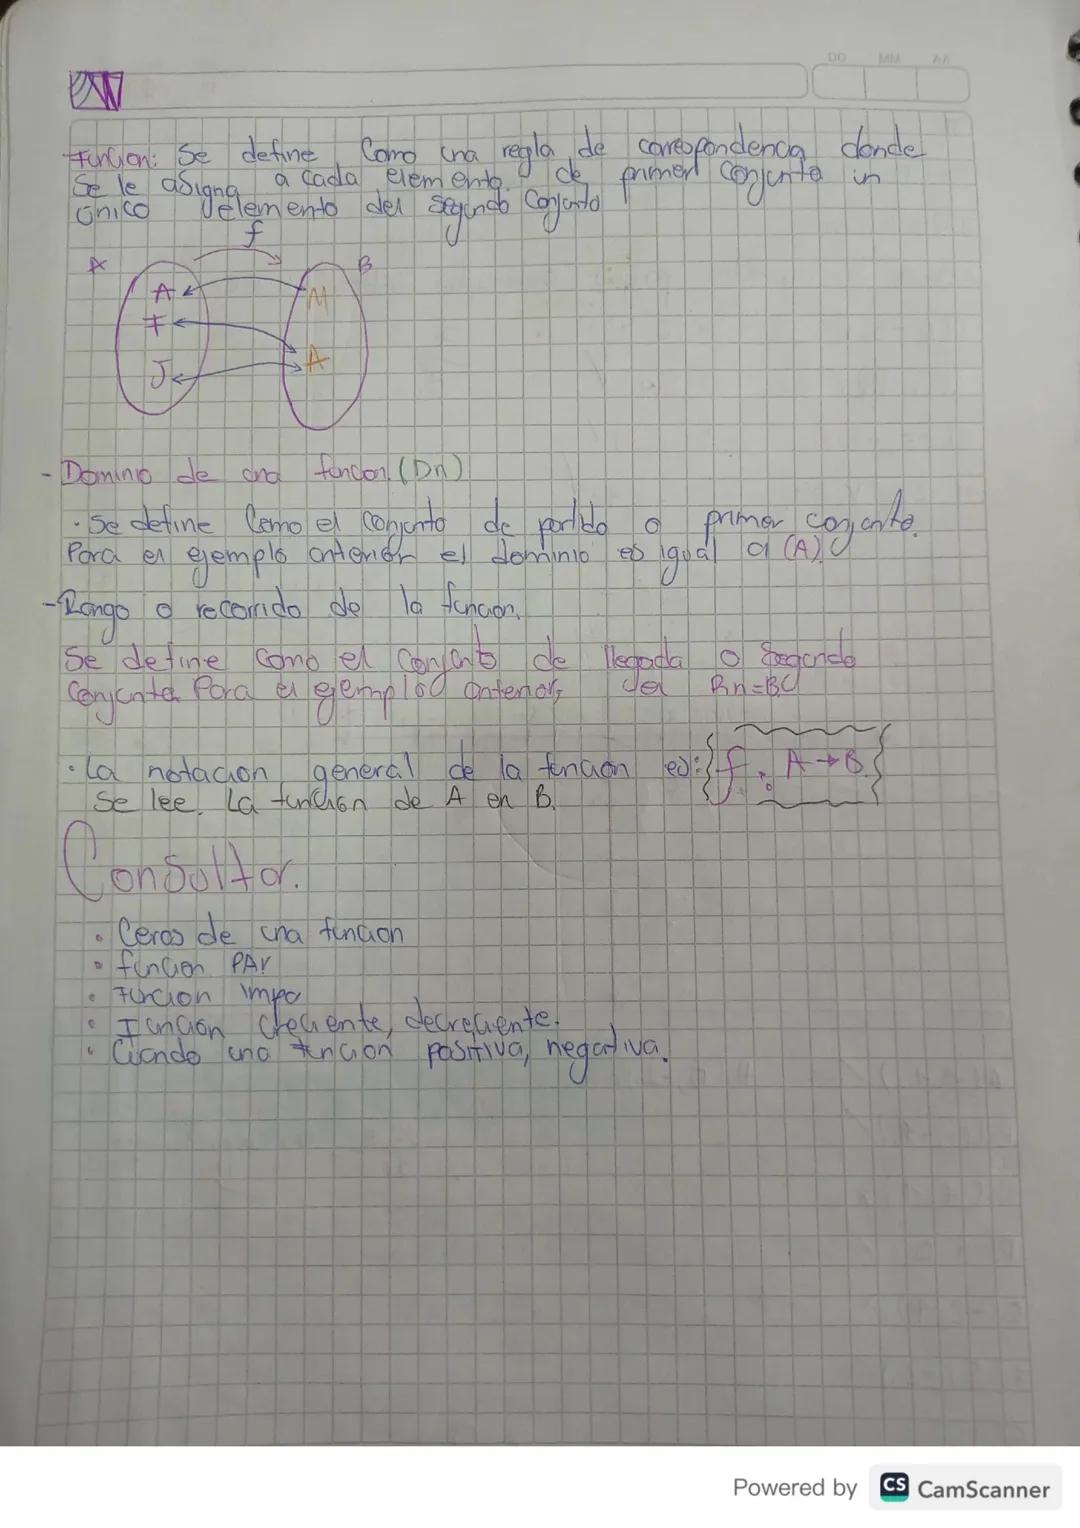 DD MM AA
Función: Se define Como una regla de correspondencia donde
Se le asigna a cada elemento de primer Conjunto un
único elemento del segundo Conjunto
f
A B
A M
F
J A
- Dominio de una funcion (Dn)
· Se define Como el conjunto de partida o primer conjunto.
Para el ejemplo anterior el dominio es igual a (A)
- Rango o recorrido de la funcion.
Se define como el conjunto de llegada o Segundo
Conjunto Para el ejemplo anterior, del Rn=B
· La notacion general de la funcion es: f : A → B
Se lee. La función de A en B.
Consultar.
• Ceros de una funcion
• funcion PAr
• Funcion impa
• Funcion creciente, decreciente.
• Cuando una funcion positiva, negativa.
Powered by CS CamScanner